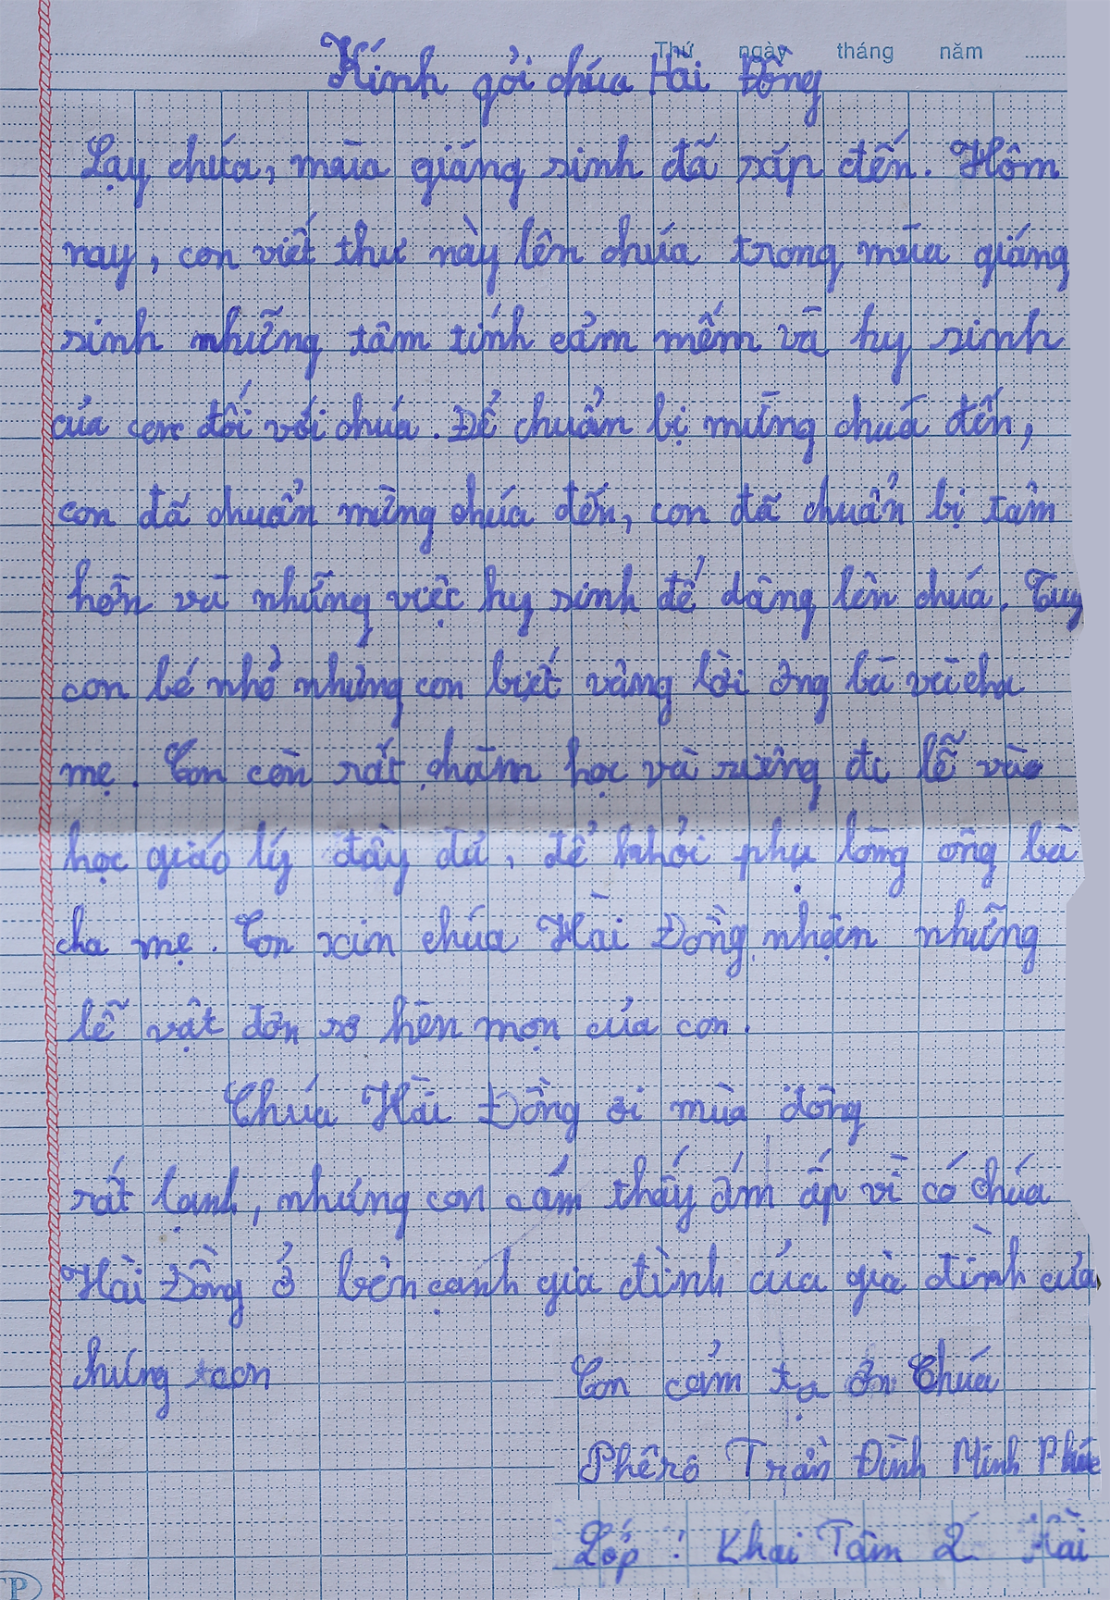 Thứ ngày tháng năm
Kính gởi chúa Hài Đồng
Lạy chúa, mùa giáng sinh đã sắp đến. Hôm
nay, con viết thư này lên chúa trong mùa giáng
sinh những tâm tính cảm mếm và hy sinh
của con đối với chúa. Để chuẩn bị mừng chuá đến,
con đã chuẩn mừng chúa đến, con đã chuẩn bị tâm
hồn và những việc hy sinh để dâng lên chúa. Tuy
con bé nhỏ nhưng con biết vâng lời ông bà và cha
mẹ. Con còn rất chăm học và siêng đi lễ vào
học giáo lý đầy đủ, để khỏi phụ lòng ông bà
cha mẹ. Con xin chúa Hài Đồng nhận những
lễ vật đơn sơ hèn mọn của con.
Chúa Hài Đồng ơi mùa đông
rất lạnh, nhưng con cảm thấy ấm áp vì có chúa
Hài Đồng ở bên cạnh gia đình của gia đình của
húng con
Con cảm tạ ơn Chúa
Phêrô Trần Đình Minh Phúc
Lớp : Khai Tâm 2 Hài
TP